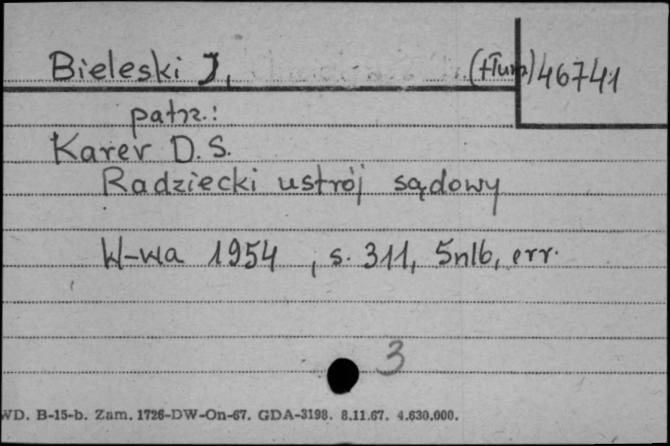 Bieleski J, (tłum) 46741
patrz.:
Karev D. S.
Radziecki ustrój sądowy
W-wa 1954, s. 311, 5nlb, err.
3
WD. B-15-b. Zam. 1726-DW-On-67. GDA-3198. 8.11.67. 4.630.000.